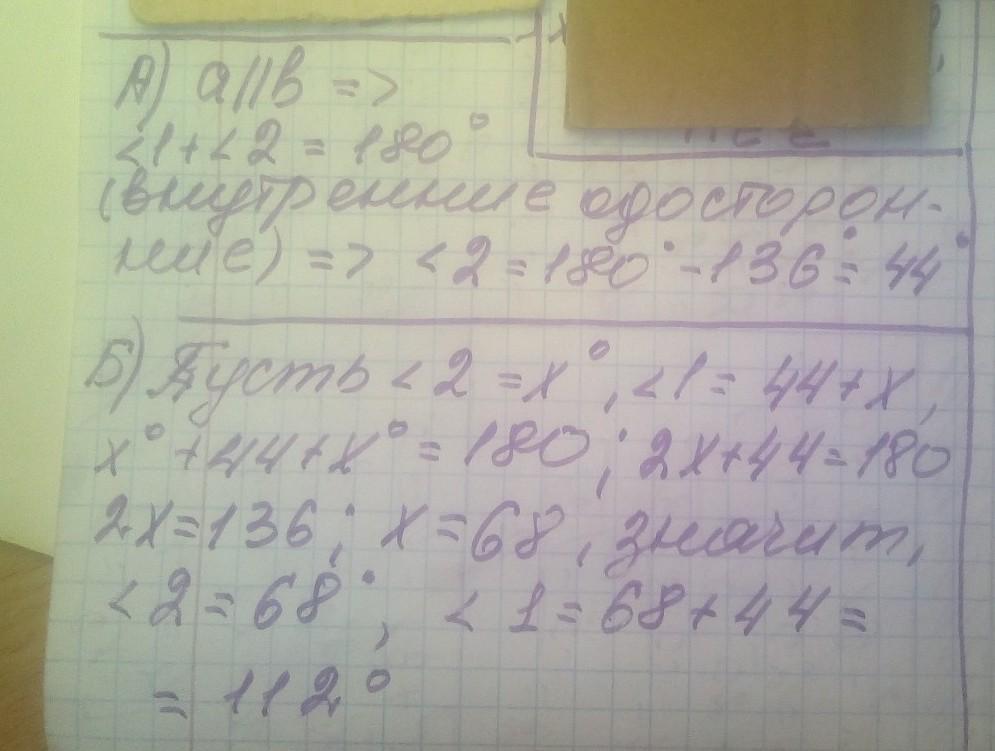 А) a||b =>
<1+<2 = 180°
(внутренние одосторон-
ние) => <2 = 180° - 136° = 44°
Б) Пусть <2 = x°, <1 = 44+x,
x° + 44 + x° = 180; 2x+44=180
2x=136; x=68, значит,
<2 = 68°; <1 = 68+44 =
= 112°